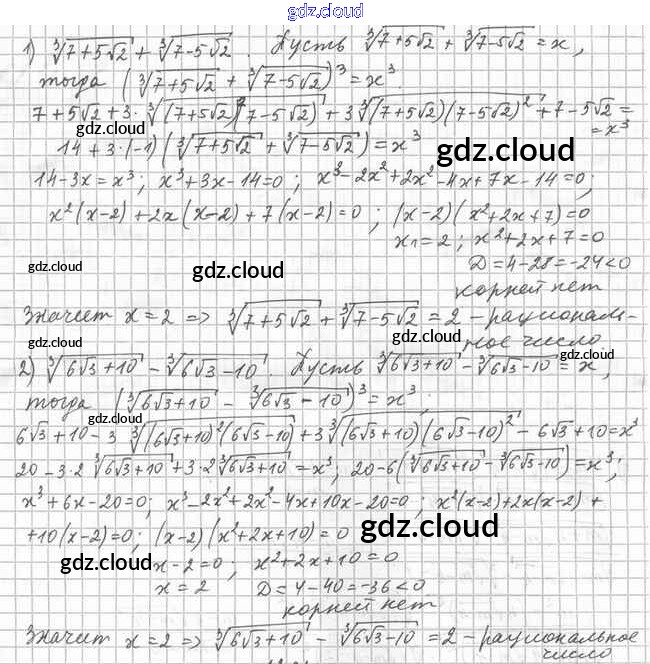 gdz.cloud
1) ∛(7+5√2) + ∛(7-5√2). Пусть ∛(7+5√2) + ∛(7-5√2) = x,
тогда (∛(7+5√2) + ∛(7-5√2))³ = x³.
7+5√2+3·∛((7+5√2)²(7-5√2)) + 3∛((7+5√2)(7-5√2)²) + 7-5√2 =
= x³
gdz.cloud
14+3·(-1)(∛(7+5√2) + ∛(7-5√2)) = x³
gdz.cloud
14-3x=x³; x³+3x-14=0; x³-2x²+2x²-4x+7x-14=0;
x²(x-2)+2x(x-2)+7(x-2)=0; (x-2)(x²+2x+7)=0
x₁=2; x²+2x+7=0
gdz.cloud
gdz.cloud
D=4-28=-24<0
корней нет
Значит x=2 => ∛(7+5√2) + ∛(7-5√2) = 2 - рациональ-
gdz.cloud
ное число
2) ∛(6√3+10) - ∛(6√3-10). Пусть ∛(6√3+10) - ∛(6√3-10) = x,
gdz.cloud
gdz.cloud
тогда (∛(6√3+10) - ∛(6√3-10))³ = x³;
gdz.cloud
6√3+10-3∛((6√3+10)²(6√3-10)) + 3∛((6√3+10)(6√3-10)²) - 6√3+10=x³
20-3·2∛(6√3+10) + 3·2∛(6√3+10) = x³; 20-6(∛(6√3+10) - ∛(6√3-10)) = x³;
x³+6x-20=0; x³-2x²+2x²-4x+10x-20=0; x²(x-2)+2x(x-2)+
+10(x-2)=0; (x-2)(x²+2x+10)=0
gdz.cloud
gdz.cloud
x-2=0; x²+2x+10=0
x=2 D=4-40=-36<0
корней нет
Значит x=2 => ∛(6√3+10) - ∛(6√3-10) = 2 - рациональное
число